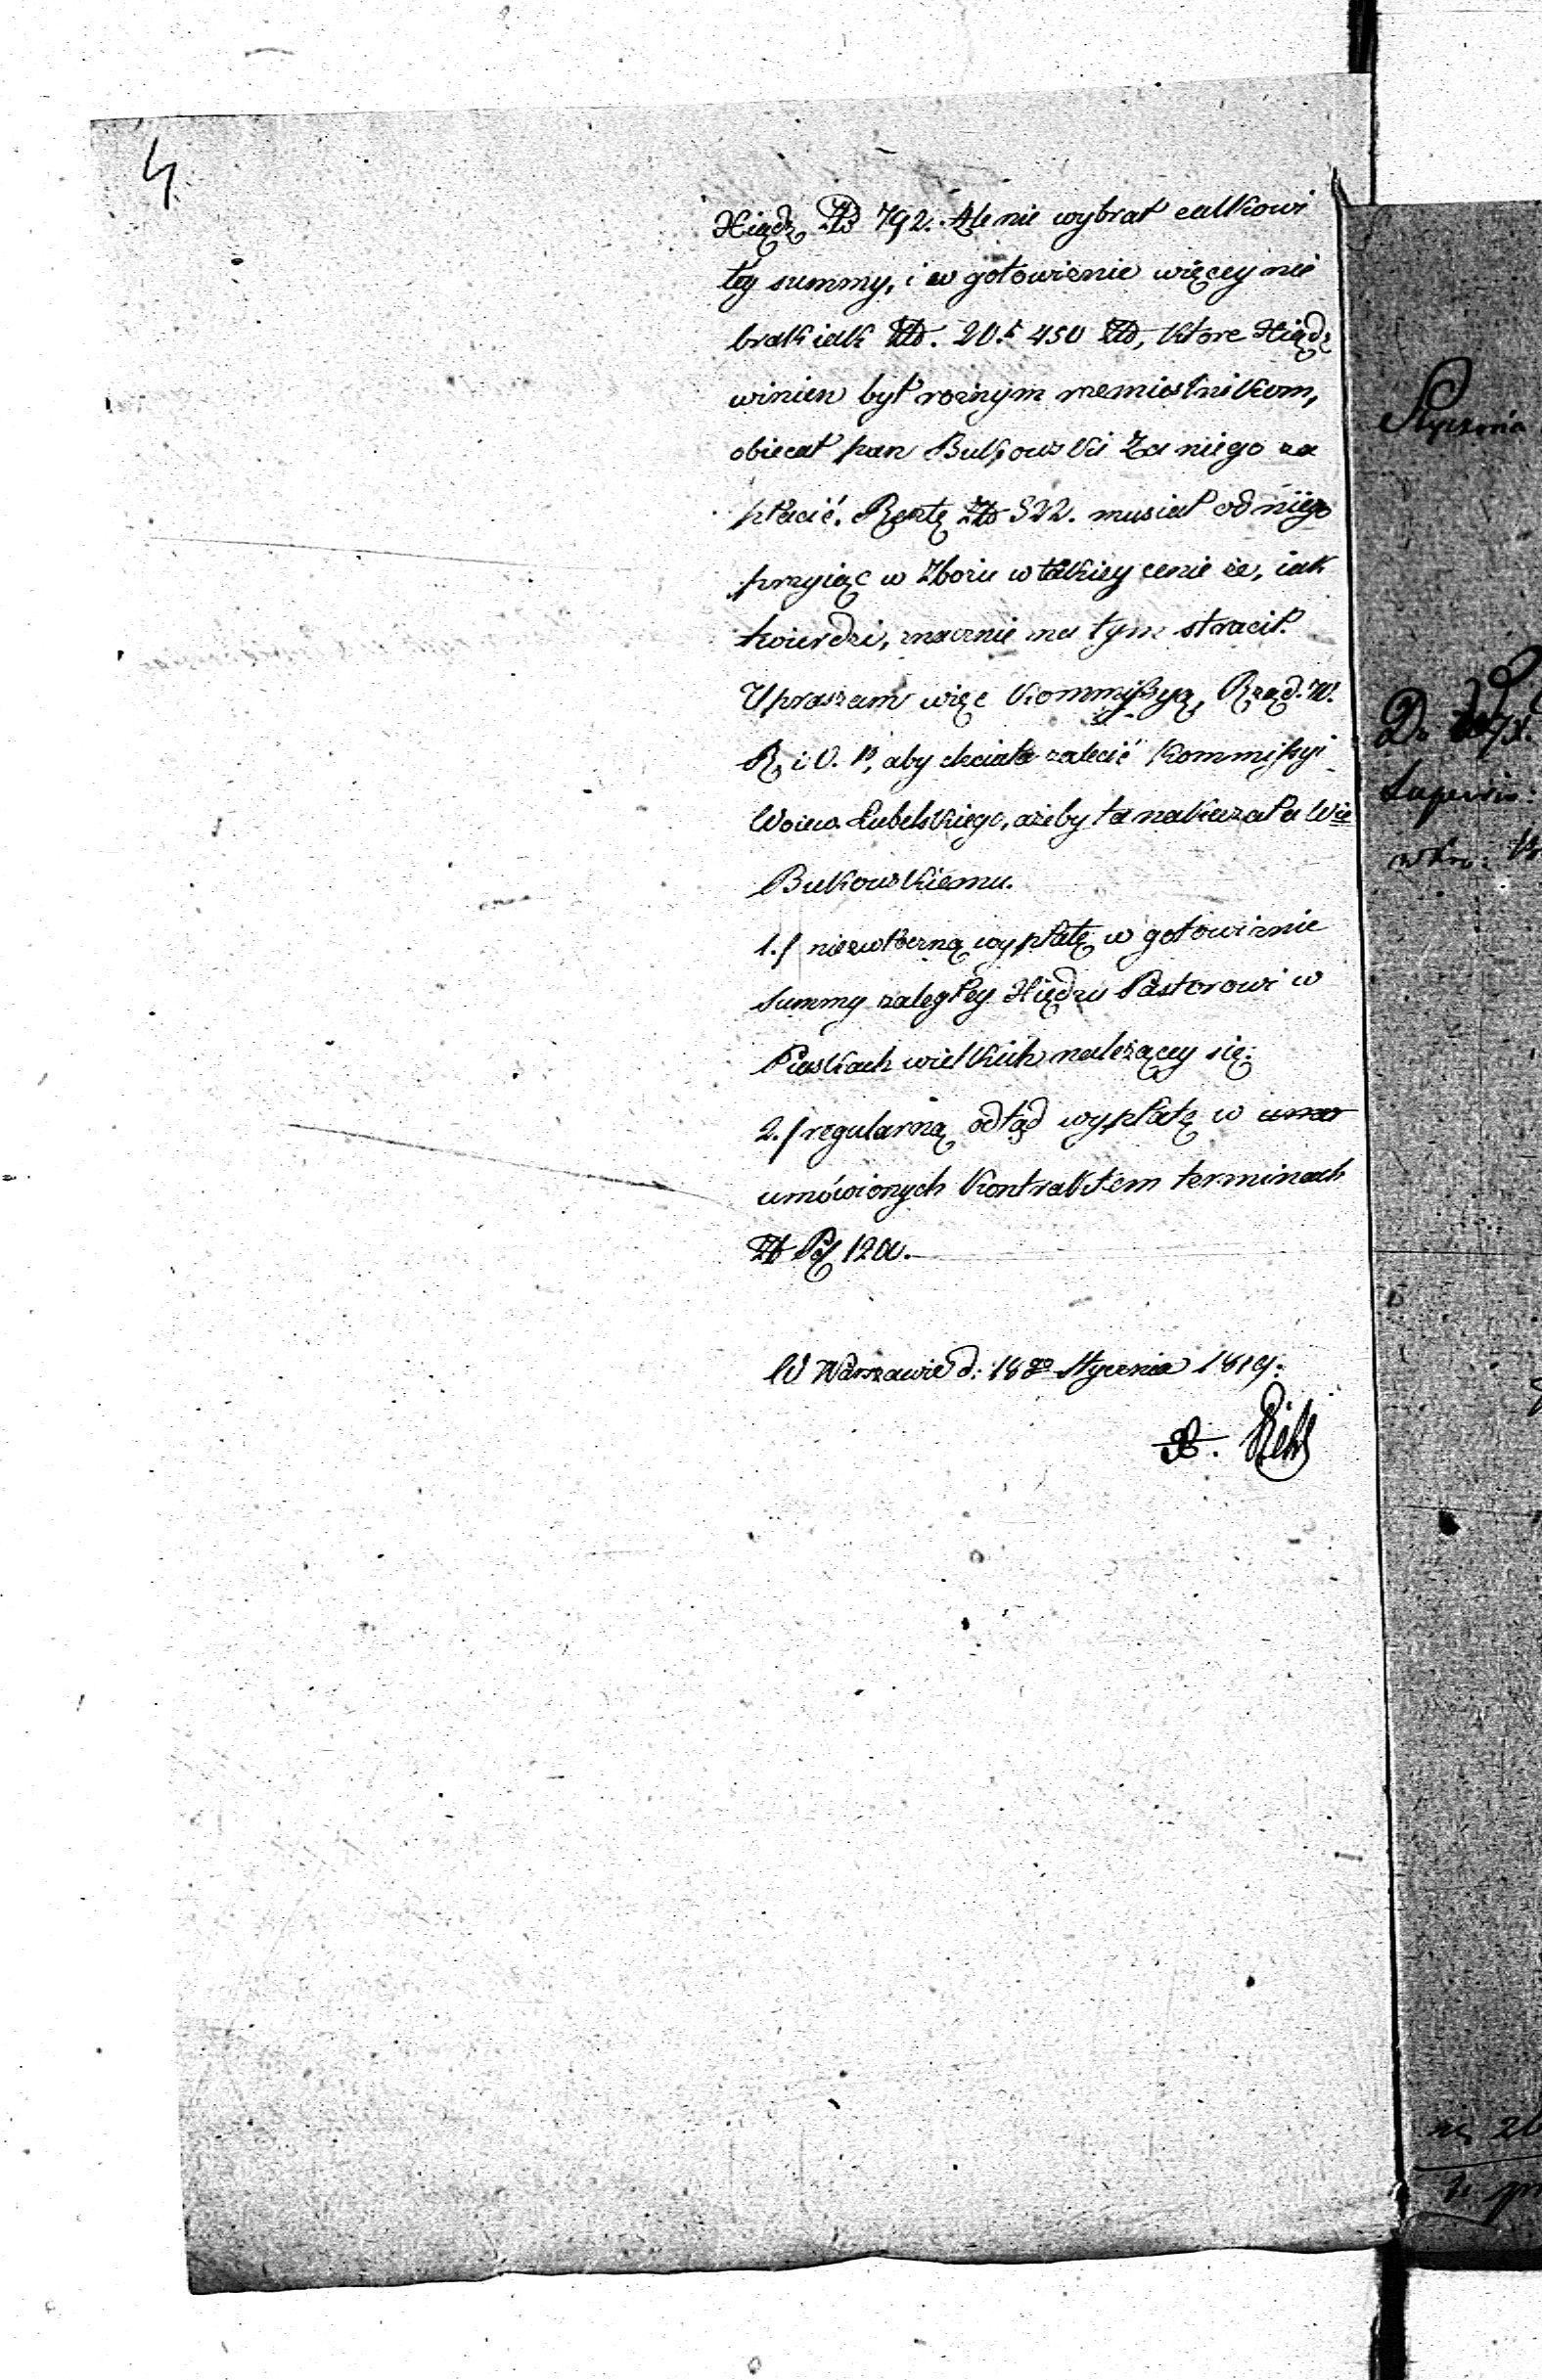 4.
Xiądz Złt 792. Ale nie wybrał całkowi
tey summy, i w gotowiznie więcey nie
brak iak Złt. 20. 450 Złt, ktore Xiądz
winien był rożnym rzemiesnikom,
obiecał pan Bukowski za niego za
płacić. Resztę Złt 322. musiał od niego
przyiąć w zbożu w takiey cenie że, iak
twierdzi, znacznie na tym stracił.
Upraszam więc Kommissyą Rząd. W.
R. i O. P, aby chciała zalecić Kommissyi
Woiew. Lubelskiego, ażeby ta nakazała Wie
Bukowskiemu.
1./ niezwłoczną wypłatę w gotowiznie
summy zaległey Xiędzu Pastorowi w
Piaskach wielkich należącey się.
2./ regularną odtąd wypłatę w
umówionych Kontraktem terminach
Złt Pol 1200.
W Warszawie d: 18go Stycznia 1819.
Stycznia